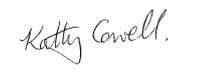 Kathy Cowell.